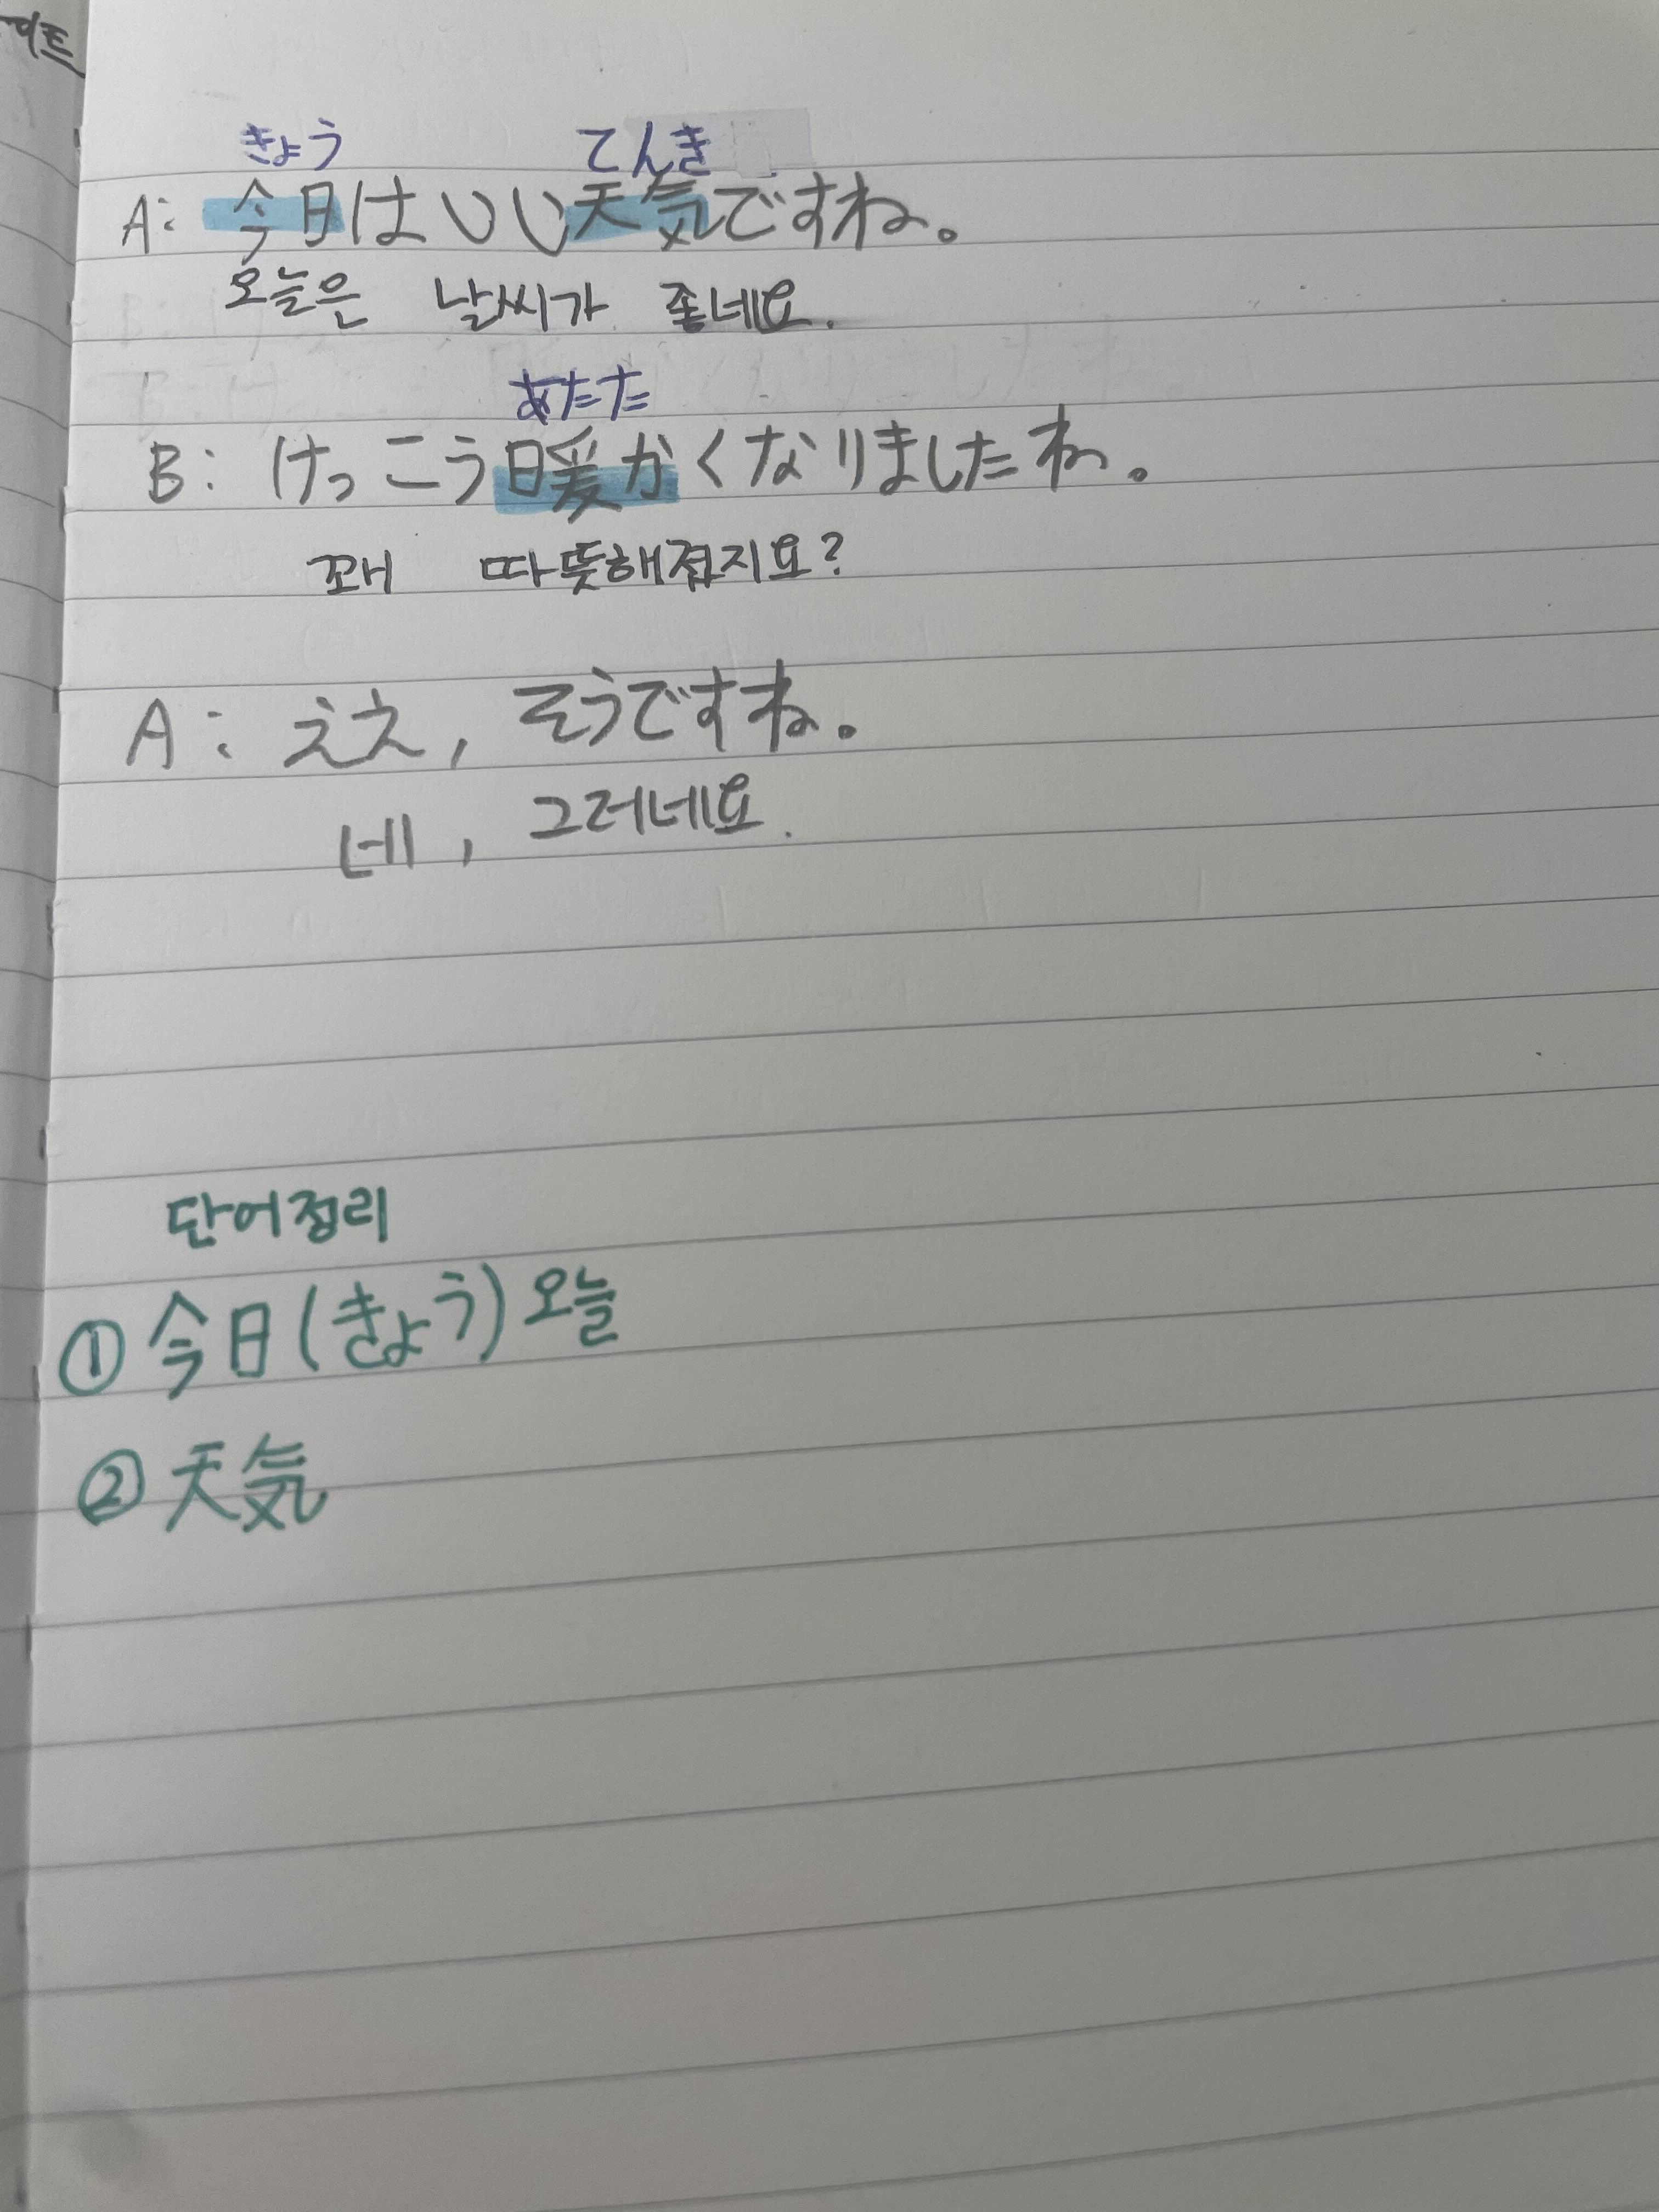 きょう てんき
A: 今日はいい天気ですね。
오늘은 날씨가 좋네요.
あたた
B: けっこう暖かくなりましたね。
꽤 따뜻해졌지요?
A: ええ, そうですね。
네, 그러네요.
단어정리
① 今日(きょう) 오늘
② 天気